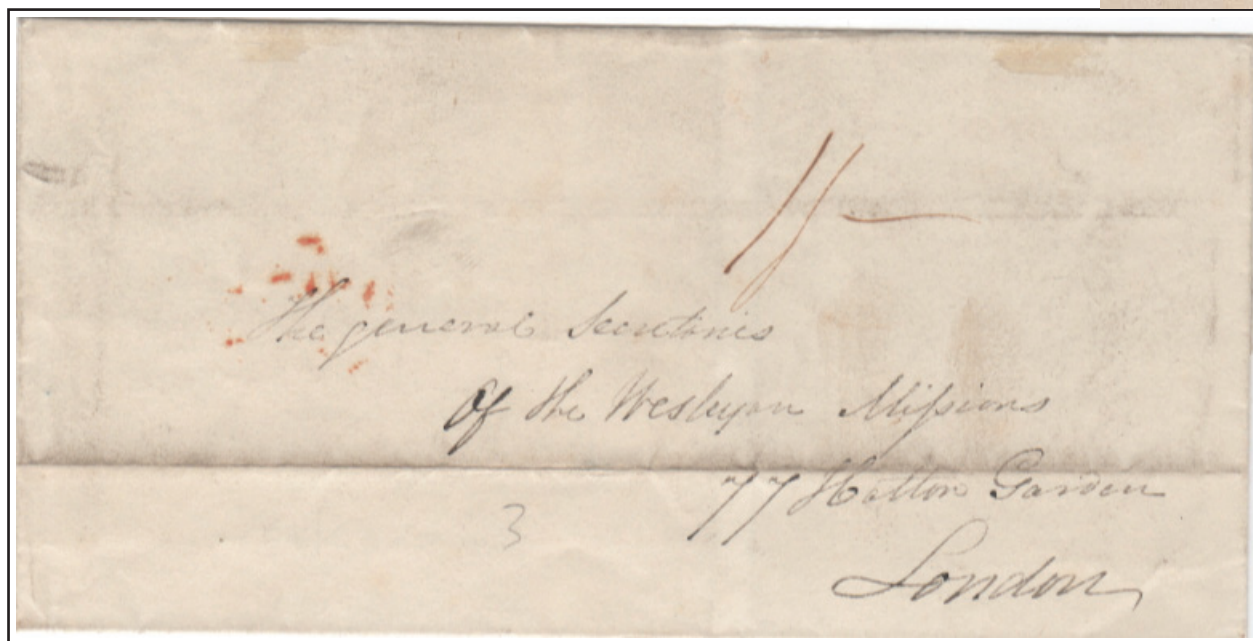 1/-
The general Secretaries
Of the Wesleyan Missions
77 Hatton Garden
London
3